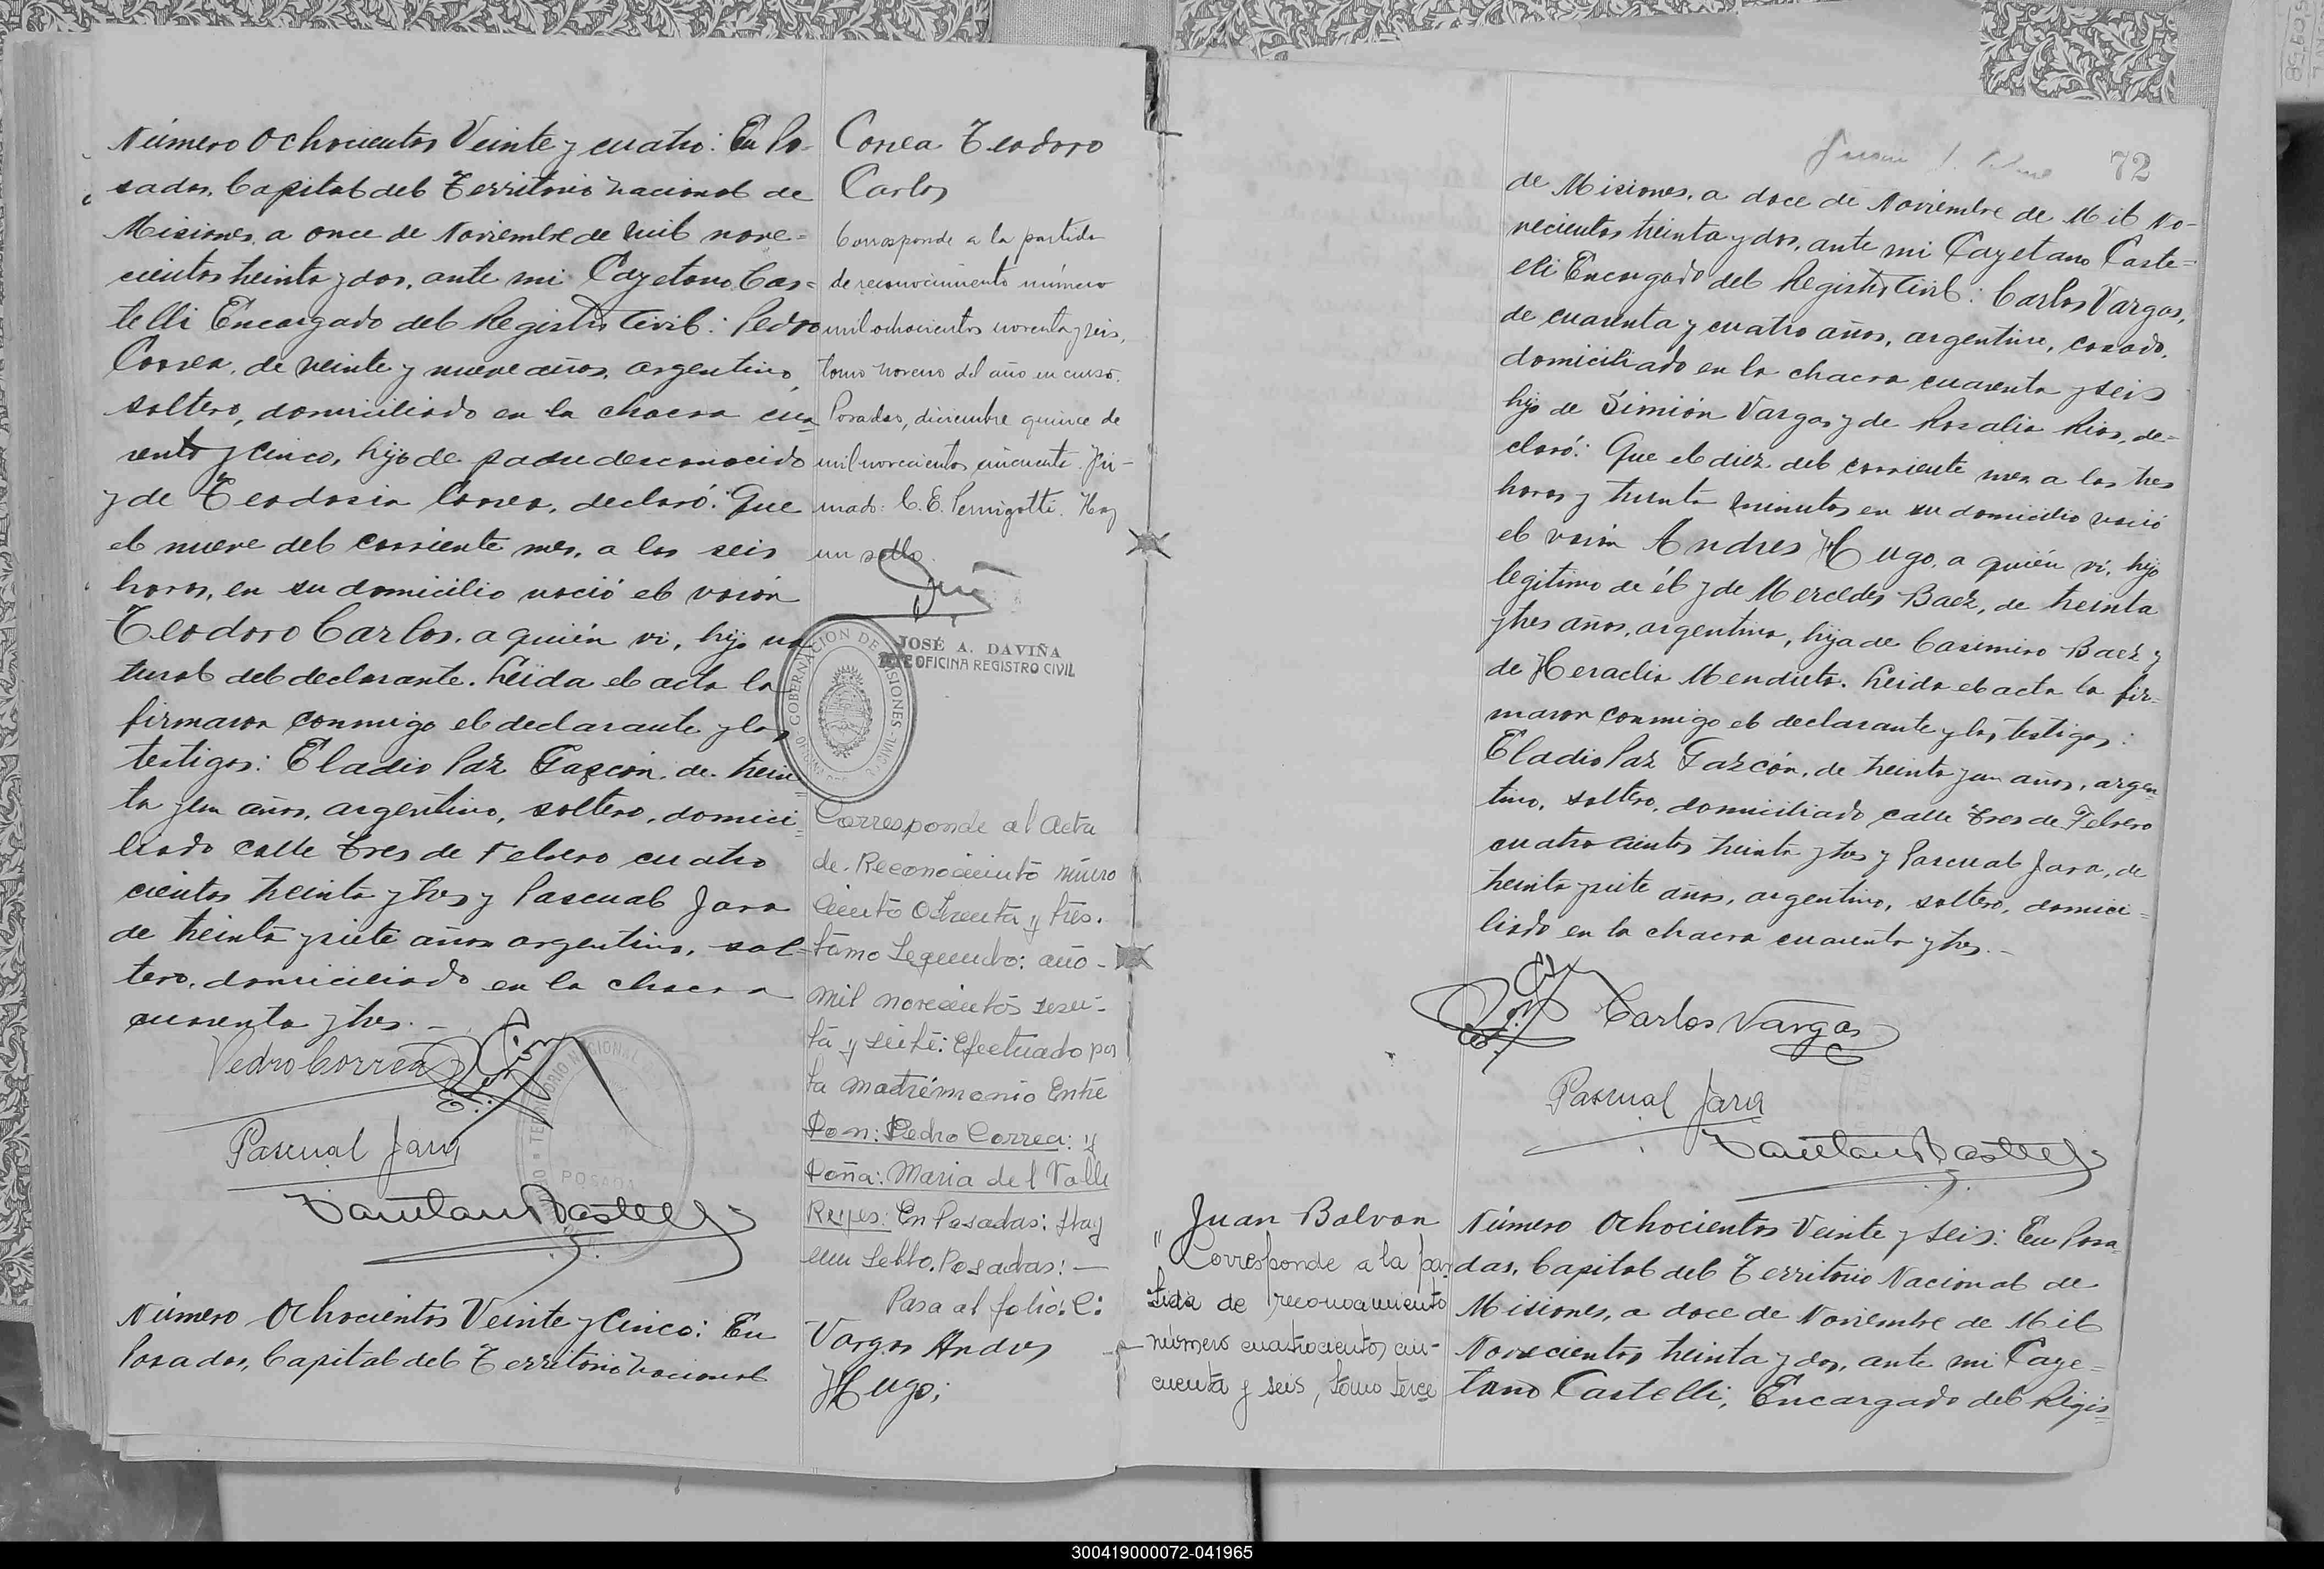 Número Ochocientos Veinte y cuatro: En Po-
sadas, Capital del Territorio Nacional de
Misiones, a once de Noviembre de mil nove-
cientos treinta y dos, ante mi Cayetano Cas-
telli Encargado del Registro Civil: Pedro
Correa, de veinte y nueve años, argentino,
soltero, domiciliado en la chacra cua-
renta y cinco, hijo de padre desconocido
y de Teodosia Correa, declaró: Que
el nueve del corriente mes, a las seis
horas, en su domicilio nació el varón
Teodoro Carlos, a quién vi, hijo na-
tural del declarante. Leida el acta la
firmaron conmigo el declarante y los
testigos: Eladio Paz Gazcón, de trein
ta y un años, argentino, soltero, domici-
liado calle Tres de Febrero cuatro
cientos treinta y tres y Pascual Jara
de treinta y siete años argentino, sol-
tero, domiciliado en la chacra
cuarenta y tres.-
Pedro Correa
Pascual Jara
Cayetano Castelli
TERRITORIO NACIONAL
POSADA
Número Ochocientos Veinte y Cinco: En
Posadas, Capital del Territorio Nacional
Correa Teodoro
Carlos
Corresponde a la partida
de reconocimiento número
mil ochocientos noventa y seis,
tomo noveno del año en curso.
Posadas, diciembre quince de
mil novecientos cincuenta. Fir-
mado: C. E. Pernigotti. Hay
un sello.
JOSÉ A. DAVIÑA
JEFE OFICINA REGISTRO CIVIL
GOBERNACION DE MISIONES
Corresponde al Acta
de Reconocimiento número
ciento Ochenta y tres.
tomo Segundo: año-
mil novecientos sesen-
ta y siete: Efectuado por
la matrimonio Entre
Don: Pedro Correa: y
Doña: Maria del Valle
Reyes: En Posadas: Hay
un Sello. Posadas:—
Pasa al folio: C:
Vargas Andres
Hugo;
72
de Misiones, a doce de Noviembre de Mil No-
vecientos treinta y dos, ante mi Cayetano Caste-
lli Encargado del Registro Civil: Carlos Vargas,
de cuarenta y cuatro años, argentino, casado,
domiciliado en la chacra cuarenta y seis
hijo de Simión Vargas y de Rosalia Rios, de-
claró: Que el diez del corriente mes a las tres
horas y treinta minutos en su domicilio nació
el varón Andres Hugo, a quién vi, hijo
legitimo de él y de Mercedes Baez, de treinta
y tres años, argentina, hija de Casimiro Baez y
de Heraclia Mendieta. Leida el acta la fir-
maron conmigo el declarante y los testigos:
Eladio Paz Gazcón, de treinta y un años, argen-
tino, soltero, domiciliado calle Tres de Febrero
cuatrocientos treinta y tres y Pascual Jara, de
treinta y siete años, argentino, soltero, domici-
liado en la chacra cuarenta y tres.-
Carlos Vargas
Pascual Jara
Cayetano Castelli
Juan Balvon
Corresponde a la par
tida de reconocimiento
número cuatrocientos cin-
cuenta y seis, tomo terce
Número Ochocientos Veinte y Seis: En Posa-
das, Capital del Territorio Nacional de
Misiones, a doce de Noviembre de Mil
Novecientos treinta y dos, ante mi Caye-
tano Castelli, Encargado del Regis-
300419000072-041965